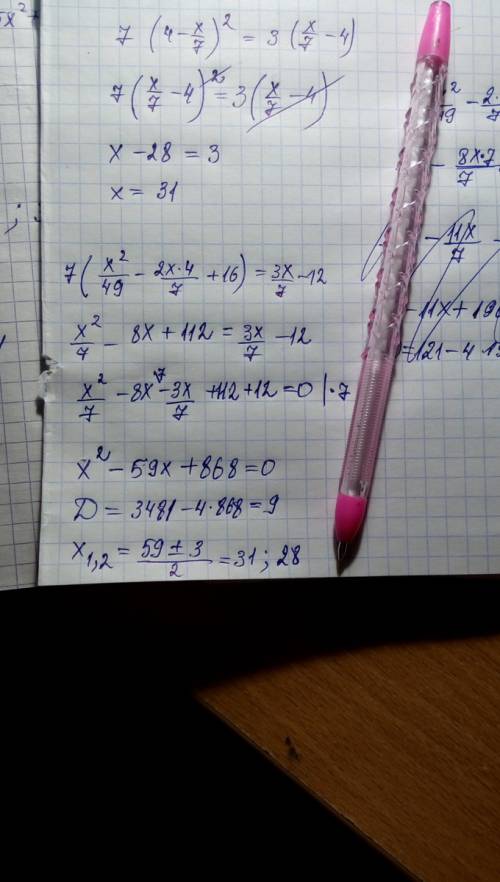 5x²
7 (4 - x/7)² = 3 (x/7 - 4)
7 (x/7 - 4)² = 3 (x/7 - 4)
x - 28 = 3
x = 31
7 (x²/49 - 2x·4/7 + 16) = 3x/7 - 12
x²/7 - 8x + 112 = 3x/7 - 12
x²/7 - 8x - 3x/7 + 112 + 12 = 0 |·7
x² - 59x + 868 = 0
D = 3481 - 4·868 = 9
x₁,₂ = (59 ± 3)/2 = 31 ; 28
- 8x·7/7
- 11x/7
- 11x + 196
= 121 - 4·19